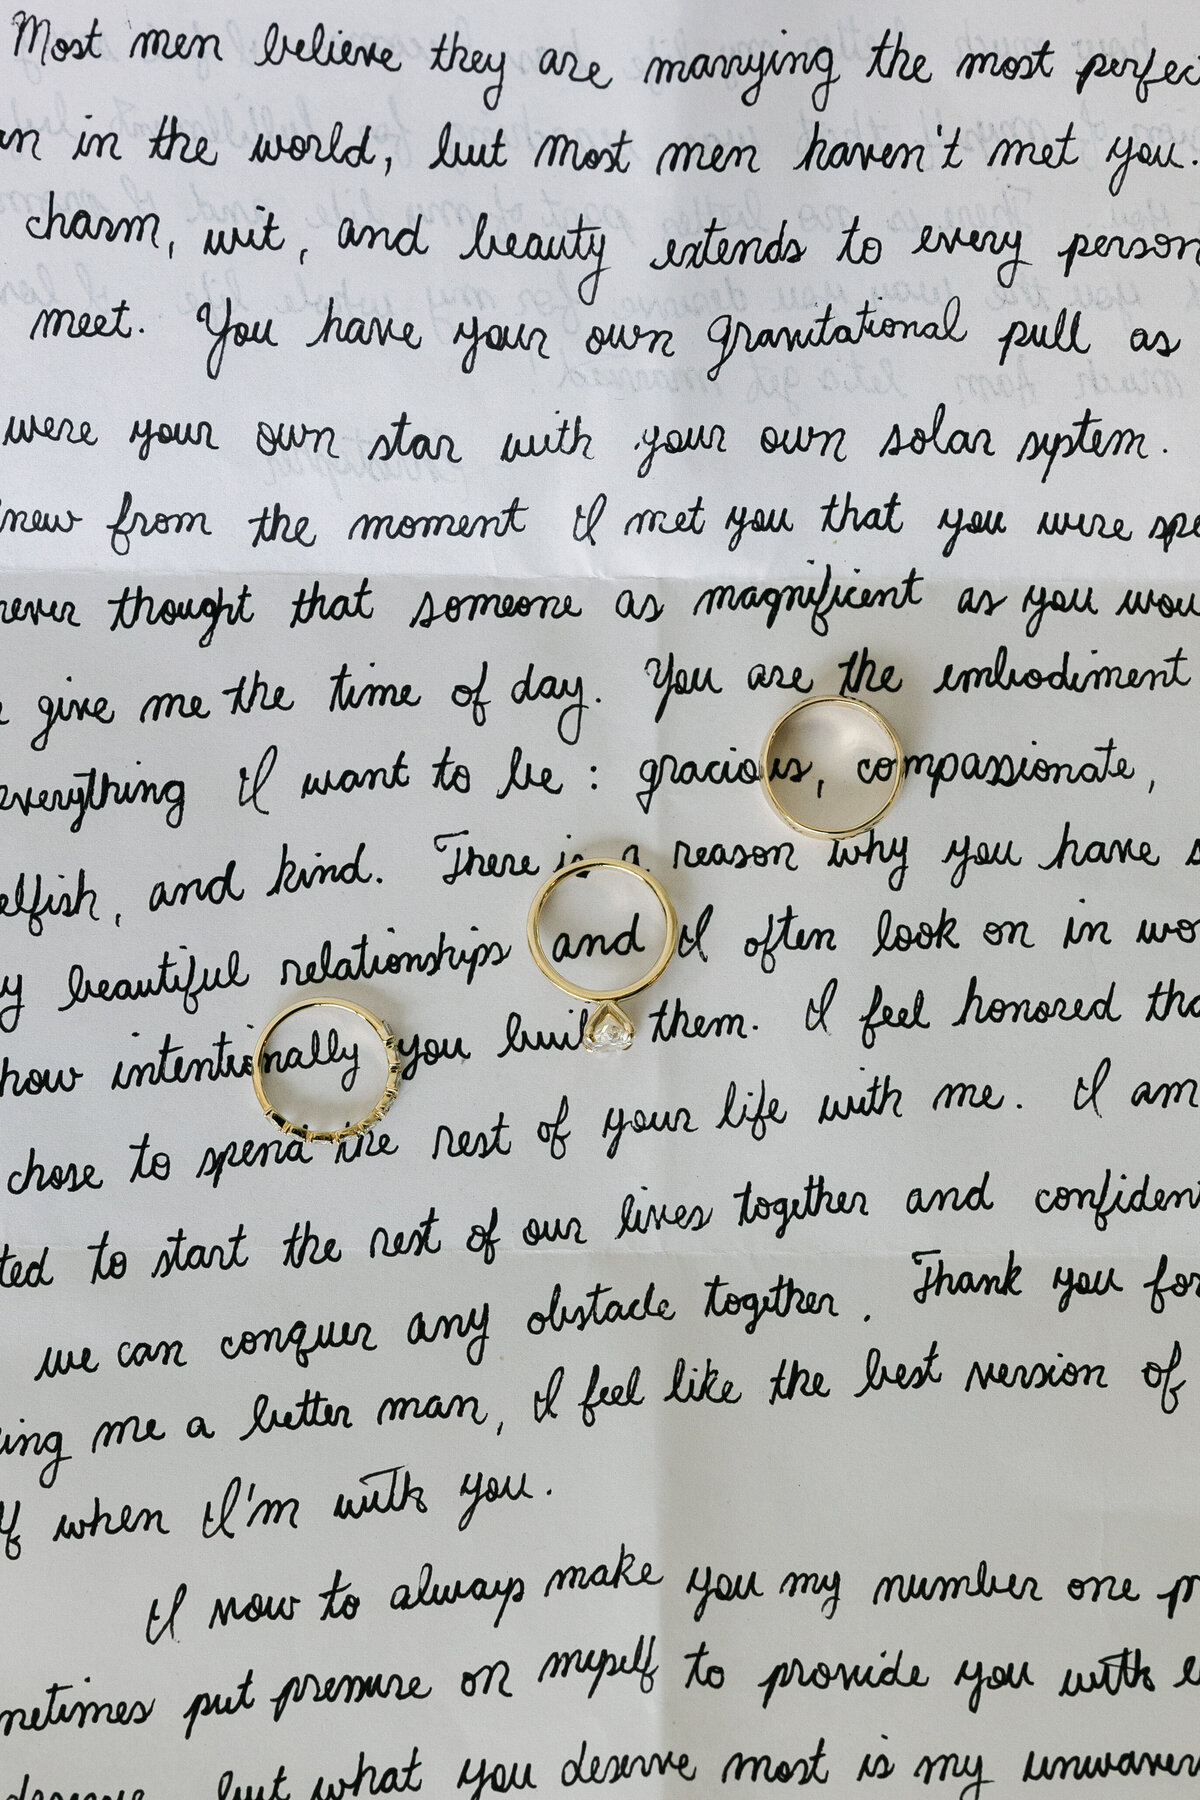 Most men believe they are marrying the most perfec
an in the world, but most men haven't met you.
charm, wit, and beauty extends to every person
meet. You have your own gravitational pull as
were your own star with your own solar system.
knew from the moment I met you that you were spe
never thought that someone as magnificent as you wou
give me the time of day. You are the embodiment
everything I want to be: gracious, compassionate,
elfish, and kind. There is a reason why you have s
y beautiful relationships and I often look on in wo
how intentionally you built them. I feel honored tha
chose to spend the rest of your life with me. I am
ted to start the rest of our lives together and confident
we can conquer any obstacle together. Thank you for
ing me a better man, I feel like the best version of
lf when I'm with you.
I vow to always make you my number one pr
metimes put pressure on myself to provide you with e
deserve, but what you deserve most is my unwaver